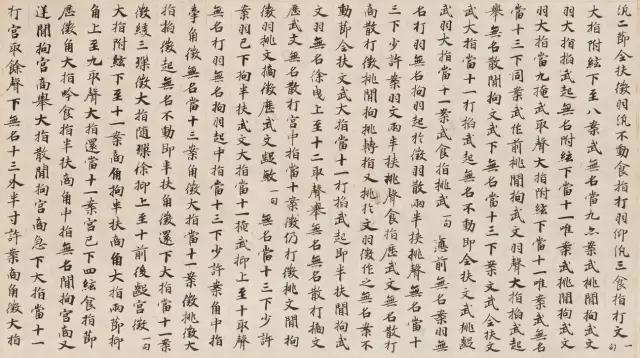 泛二節全扶徵羽泛不動食指打羽仰泛三食指打文 一句
大指附絃下至八案武無名當九案武挑間拘武文
羽大指掐武起無名附絃下當十一唯案武挑間拘武文
羽大指當九掩武取聲大指附絃下當十一唯案武無名
當十三下同案武作前挑間拘武文羽聲大指掐武起
舉無名散間拘文武下無名當十三下案文武全扶文
武大指當十一打掐武起無名不動即全扶文武挑
武羽大指當十一案武食指挑武 一句 前無名案羽無
名打羽無名拘羽起於徵羽散兩半扶挑聲無名當十
三下少許案羽文兩半扶挑聲食指歷武文無名散打
商散打徵挑間拘挑轉指又挑於文羽徵作之無名案不
動即全扶文武大指當十一打掐武起即半扶間拘武
文羽無名徐曳上至十二取聲舉無名無名散打摘文
歷武文無名散打宮中指當十案徵仍打徵挑文間拘
徵羽挑文摘徵歷武文 一句 無名當十三下少許
案羽已下拘半扶武文大指當十一掩武抑上至十取聲
無名打無名拘羽起中指當十三下少許案角中指
牽角徵無名當十三案角徵大指當十一案徵挑徵大
指掐徵起無名不動即半扶角徵還下大指當十一案
徵綾三瑮徵大指隨瑮徐抑上至十前後蹙宮徵 一句
大指附絃下至十一案商角拘半扶商角大指兩節抑
角上至九取聲大指還當十一案宮已下四絃食指節
歷徵角大指吟食指半扶商角中指無名間拘宮商又
遲間拘宮商舉大指散間拘宮商急下大指當十一
打宮取餘聲下無名十三外半寸許案商角徵大指